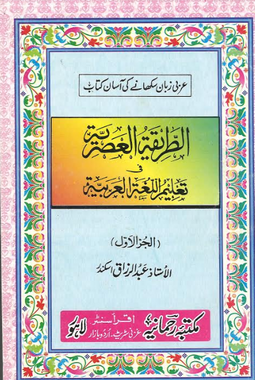 عربی زبان سکھانے کی آسان کتاب
الطريقة العصرية
في
تعليم اللغة العربية
(الجزء الاول)
الأستاذ عبد الرزاق اسکندر
مکتبہ رحمانیہ
اقرأ سنٹر
غزنی سٹریٹ، اُردو بازار
لاہور